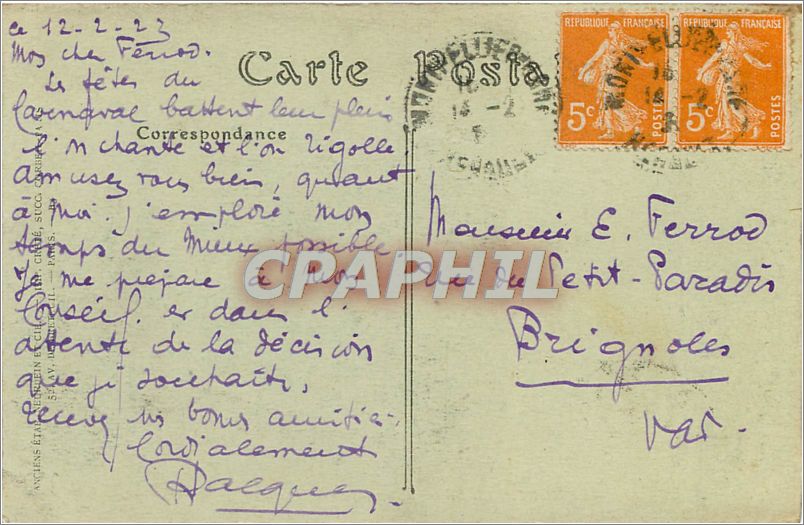 ce 12-2-23
Mon cher Ferrod.
Les fêtes du
Carnaval battent leur plein
l'on chante et l'on rigolle
amusez vous bien, quant
à moi. j'emploie mon
temps du mieux possible
Je me prépare à mon
Conseil. et dans l'
attente de la décision
que je souhaite,
recevez mes bonnes amitiés.
Cordialement
Jacques
Carte Postale
Correspondance
RÉPUBLIQUE FRANÇAISE
5c
POSTES
RÉPUBLIQUE FRANÇAISE
5c
POSTES
MONTPELLIER
14 -2
HERAULT
Monsieur E. Ferrod
rue du Petit-Paradis
Brignoles
Var.
CPAPHIL
ANCIENS ÉTAB. NEURDEIN ET CIE. CRÉTÉ, SUCC. CORBEIL
PARIS.